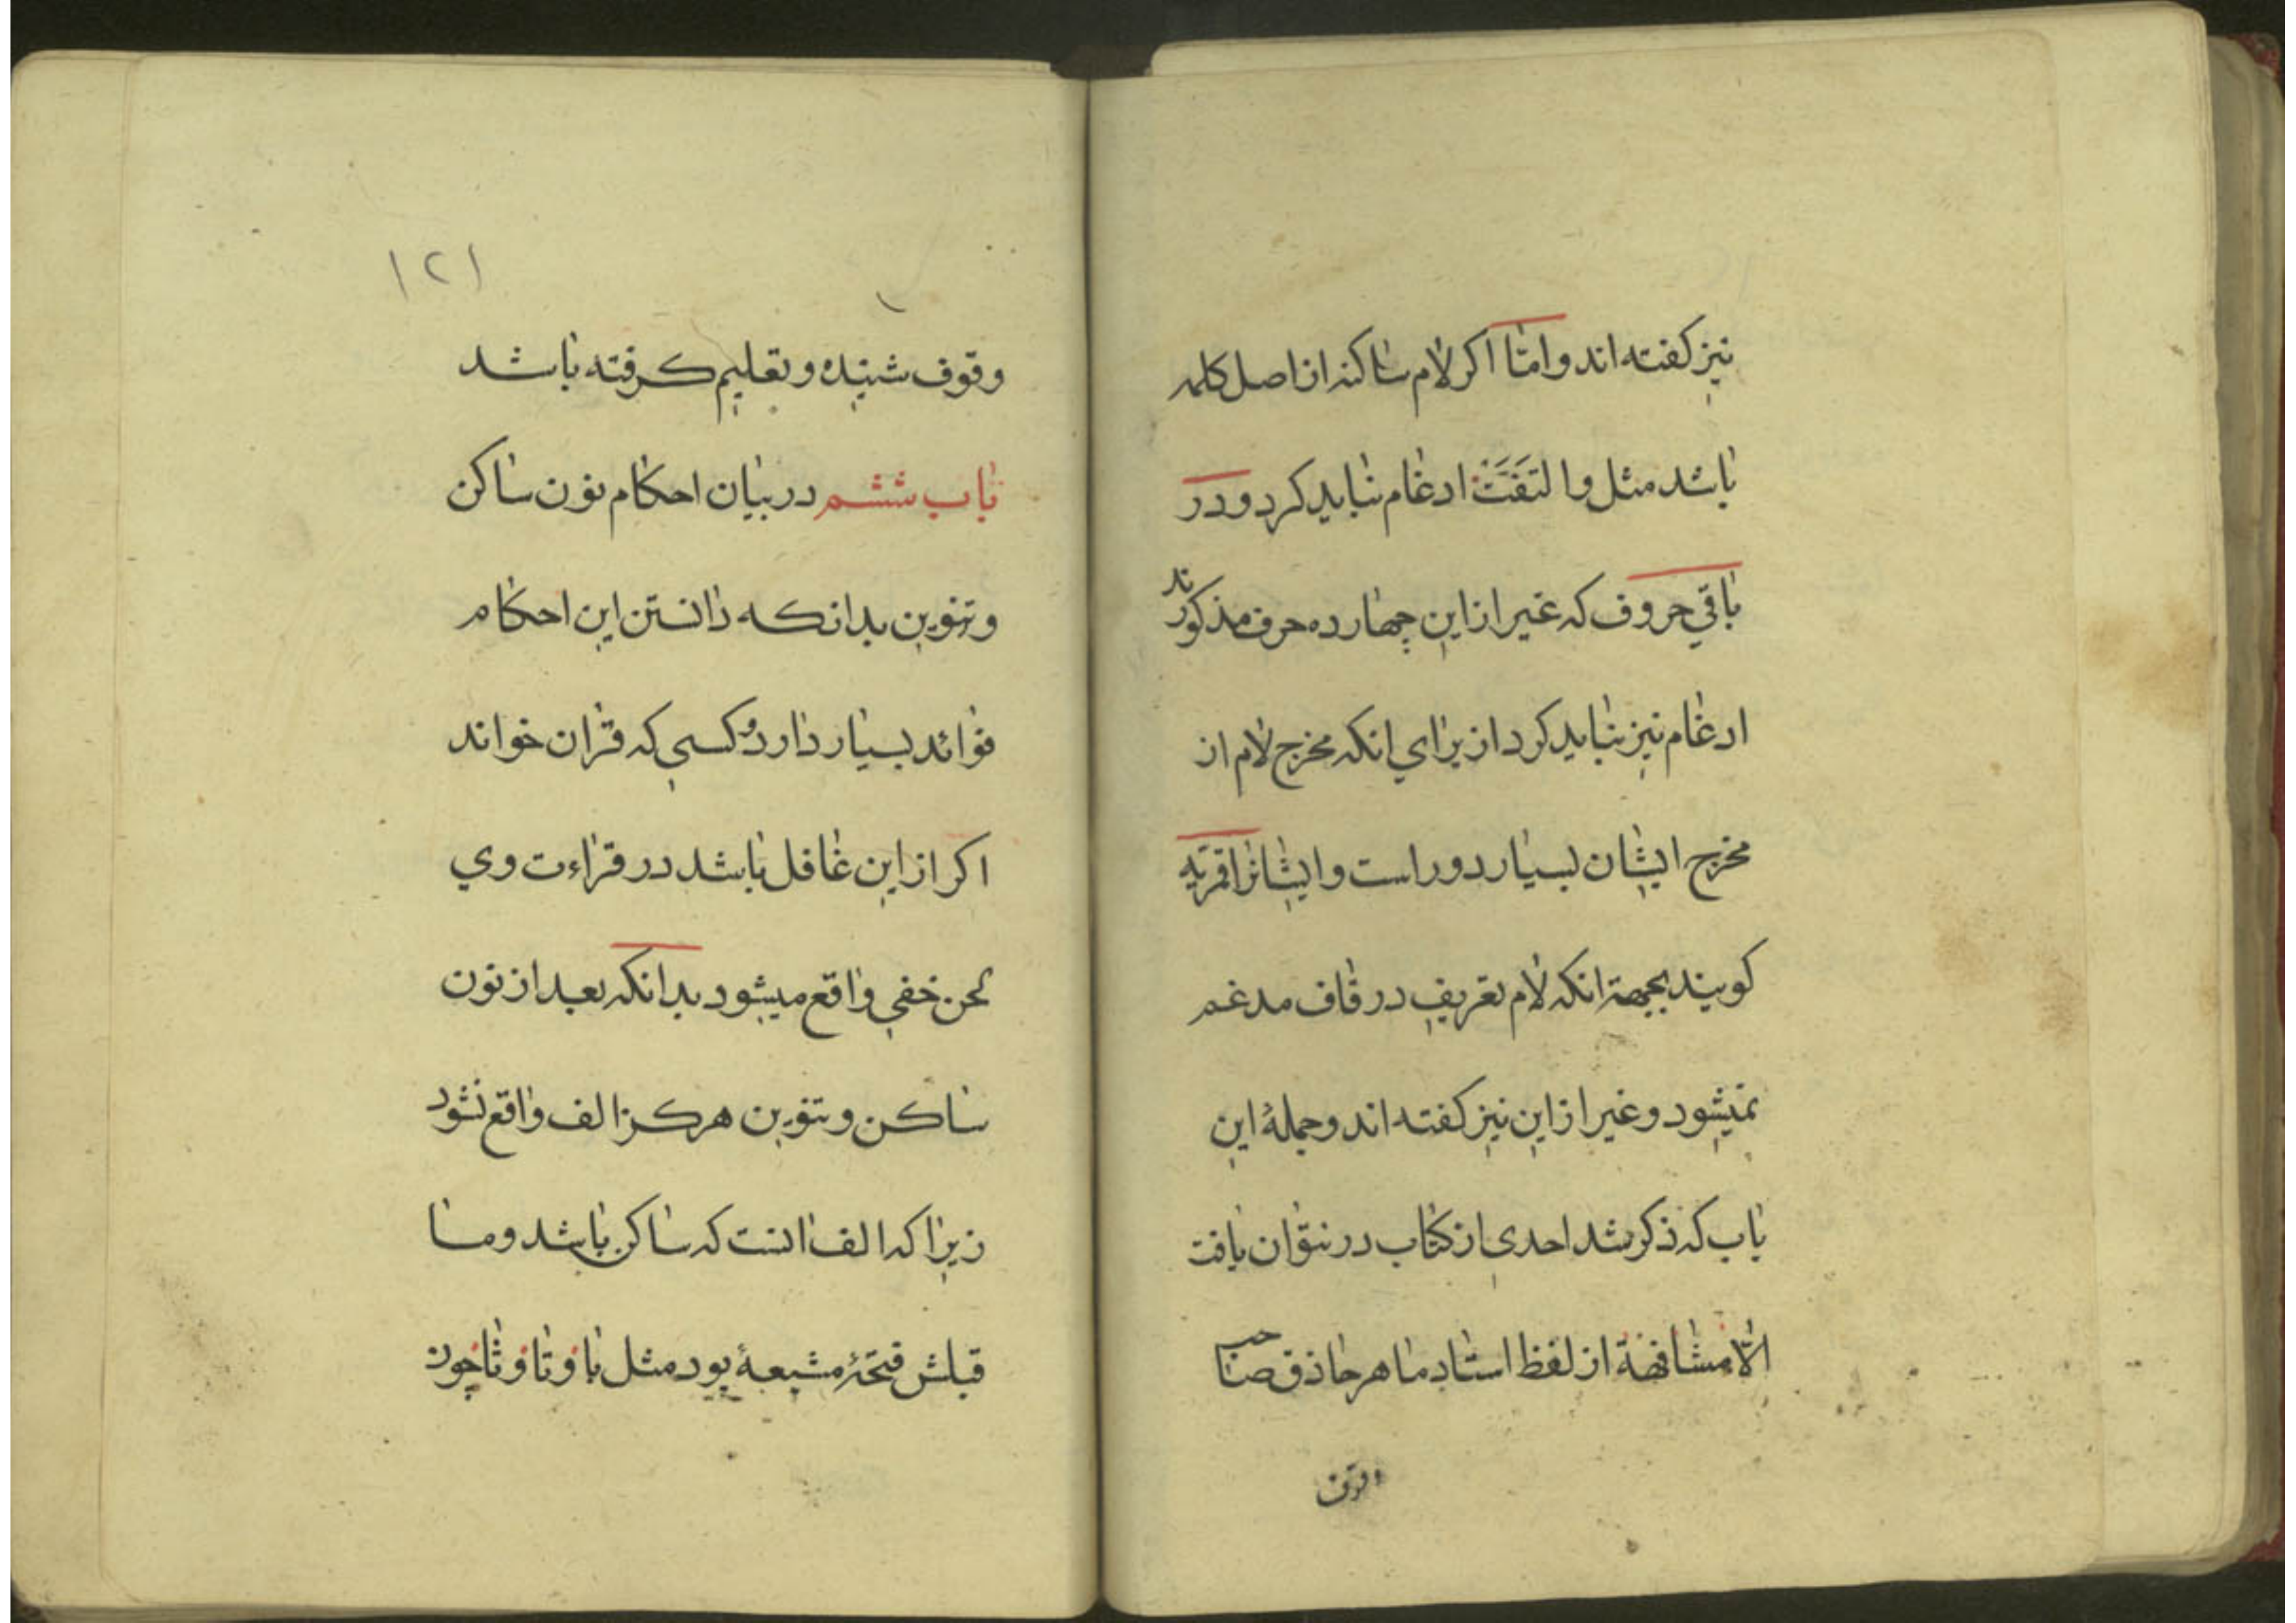 نیز کفته اند و امّا اکر لام ساکنه از اصل کلمه
باشد مثل و التفَتَتْ ادغام نباید کرد و در
باقی حروف که غیر از این چهارده حرف مذکورند
ادغام نیز نباید کرد از برای انکه مخرج لام از
مخرج ایشان بسیار دور است و ایشانرا قمریّه
کویند بجهة انکه لام تعریف در قاف مدغم
نمیشود و غیر از این نیز کفته اند و جملهٔ این
باب که ذکر شد احدی از کتاب در نتوان یافت
الّا مشافهة از لفظ استاد ماهر حاذق صاحب
وقوف
١٢١
وقوف شنیده و تعلیم کرفته باشد
باب ششم در بیان احکام نون ساکن
و تنوین بدانکه دانستن این احکام
فوائد بسیار دارد و کسی که قران خواند
اکر از این غافل باشد در قراءت وی
لحن خفی واقع میشود بدانکه بعد از نون
ساکن و تنوین هرکز الف واقع نشود
زیرا که الف انست که ساکن باشد و ما
قبلش فتحهٔ مشبعهٔ بود مثل با و تا و ثا چون